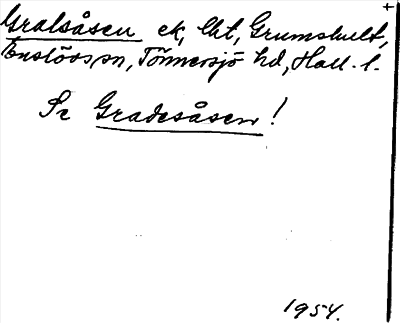 Gralsåsen ek, lht, Grumshult,
Enslövs sn, Tönnersjö hd, Hall. l.
Se Gradesåsen!
1954.